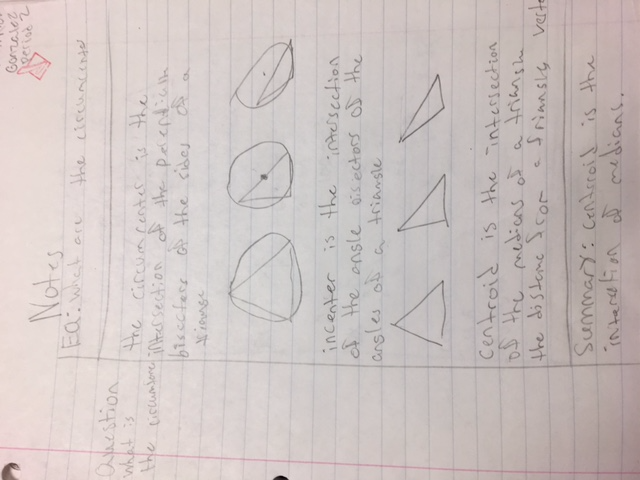 Gonzalez
Period 2
Notes
EQ: What are the circumcenter
Question
what is
the circumcenter is the
intersection of the
bisectors of the sides of a
triangle
incenter is the intersection
of the angle bisectors of the
angles of a triangle
Centroid is the intersection
of the medians of a triangle
the distance a triangle vert
Summary: Centroid is the
of medians.